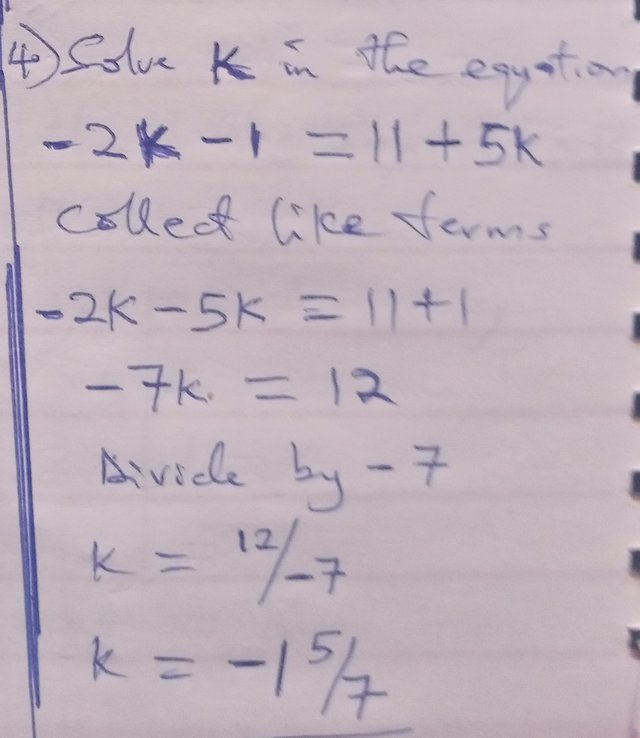 4) Solve K in the equation
-2K - 1 = 11 + 5K
Collect like terms
-2K - 5K = 11 + 1
-7K. = 12
Divide by - 7
K = 12/-7
K = -1 5/7